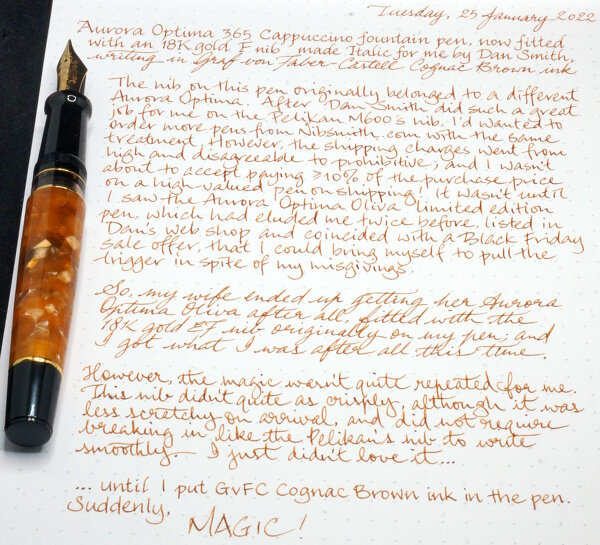 Tuesday, 25 January 2022
Aurora Optima 365 Cappuccino fountain pen, now fitted
with an 18K gold F nib made Italic for me by Dan Smith,
writing in Graf von Faber-Castell Cognac Brown ink
The nib on this pen originally belonged to a different
Aurora Optima. After Dan Smith did such a great
job for me on the Pelikan M600's nib, I'd wanted to
order more pens from Nibsmith.com with the same
treatment. However, the shipping charges went from
high and disagreeable to prohibitive; and I wasn't
about to accept paying ≥10% of the purchase price
on a high-valued pen on shipping! It wasn't until
I saw the Aurora Optima Oliva limited edition
pen, which had eluded me twice before, listed in
Dan's web shop and coincided with a Black Friday
sale offer, that I could bring myself to pull the
trigger in spite of my misgivings.
So, my wife ended up getting her Aurora
Optima Oliva after all, fitted with the
18K gold EF nib originally on my pen; and
I got what I was after all this time.
However, the magic wasn't quite repeated for me.
This nib didn't quite as crisply, although it was
less scratchy on arrival, and did not require
breaking in like the Pelikan's nib to write
smoothly. I just didn't love it...
... until I put GvFC Cognac Brown ink in the pen.
Suddenly,
MAGIC!